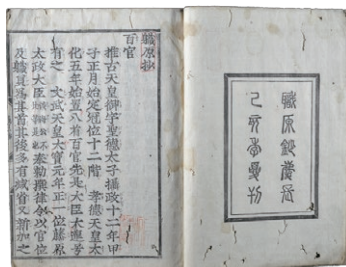 職原鈔慶長
己亥季夏刊
職原抄
百官
推古天皇御宇聖德太子攝政十二年甲
子正月始定冠位十二階 孝德天皇大
化五年始置八省百官先是大臣大連等
有之 文武天皇大寶元年正一位藤原
太政大臣 奉勅撰律令以官位
及職員爲其首其後多有減省又新加之